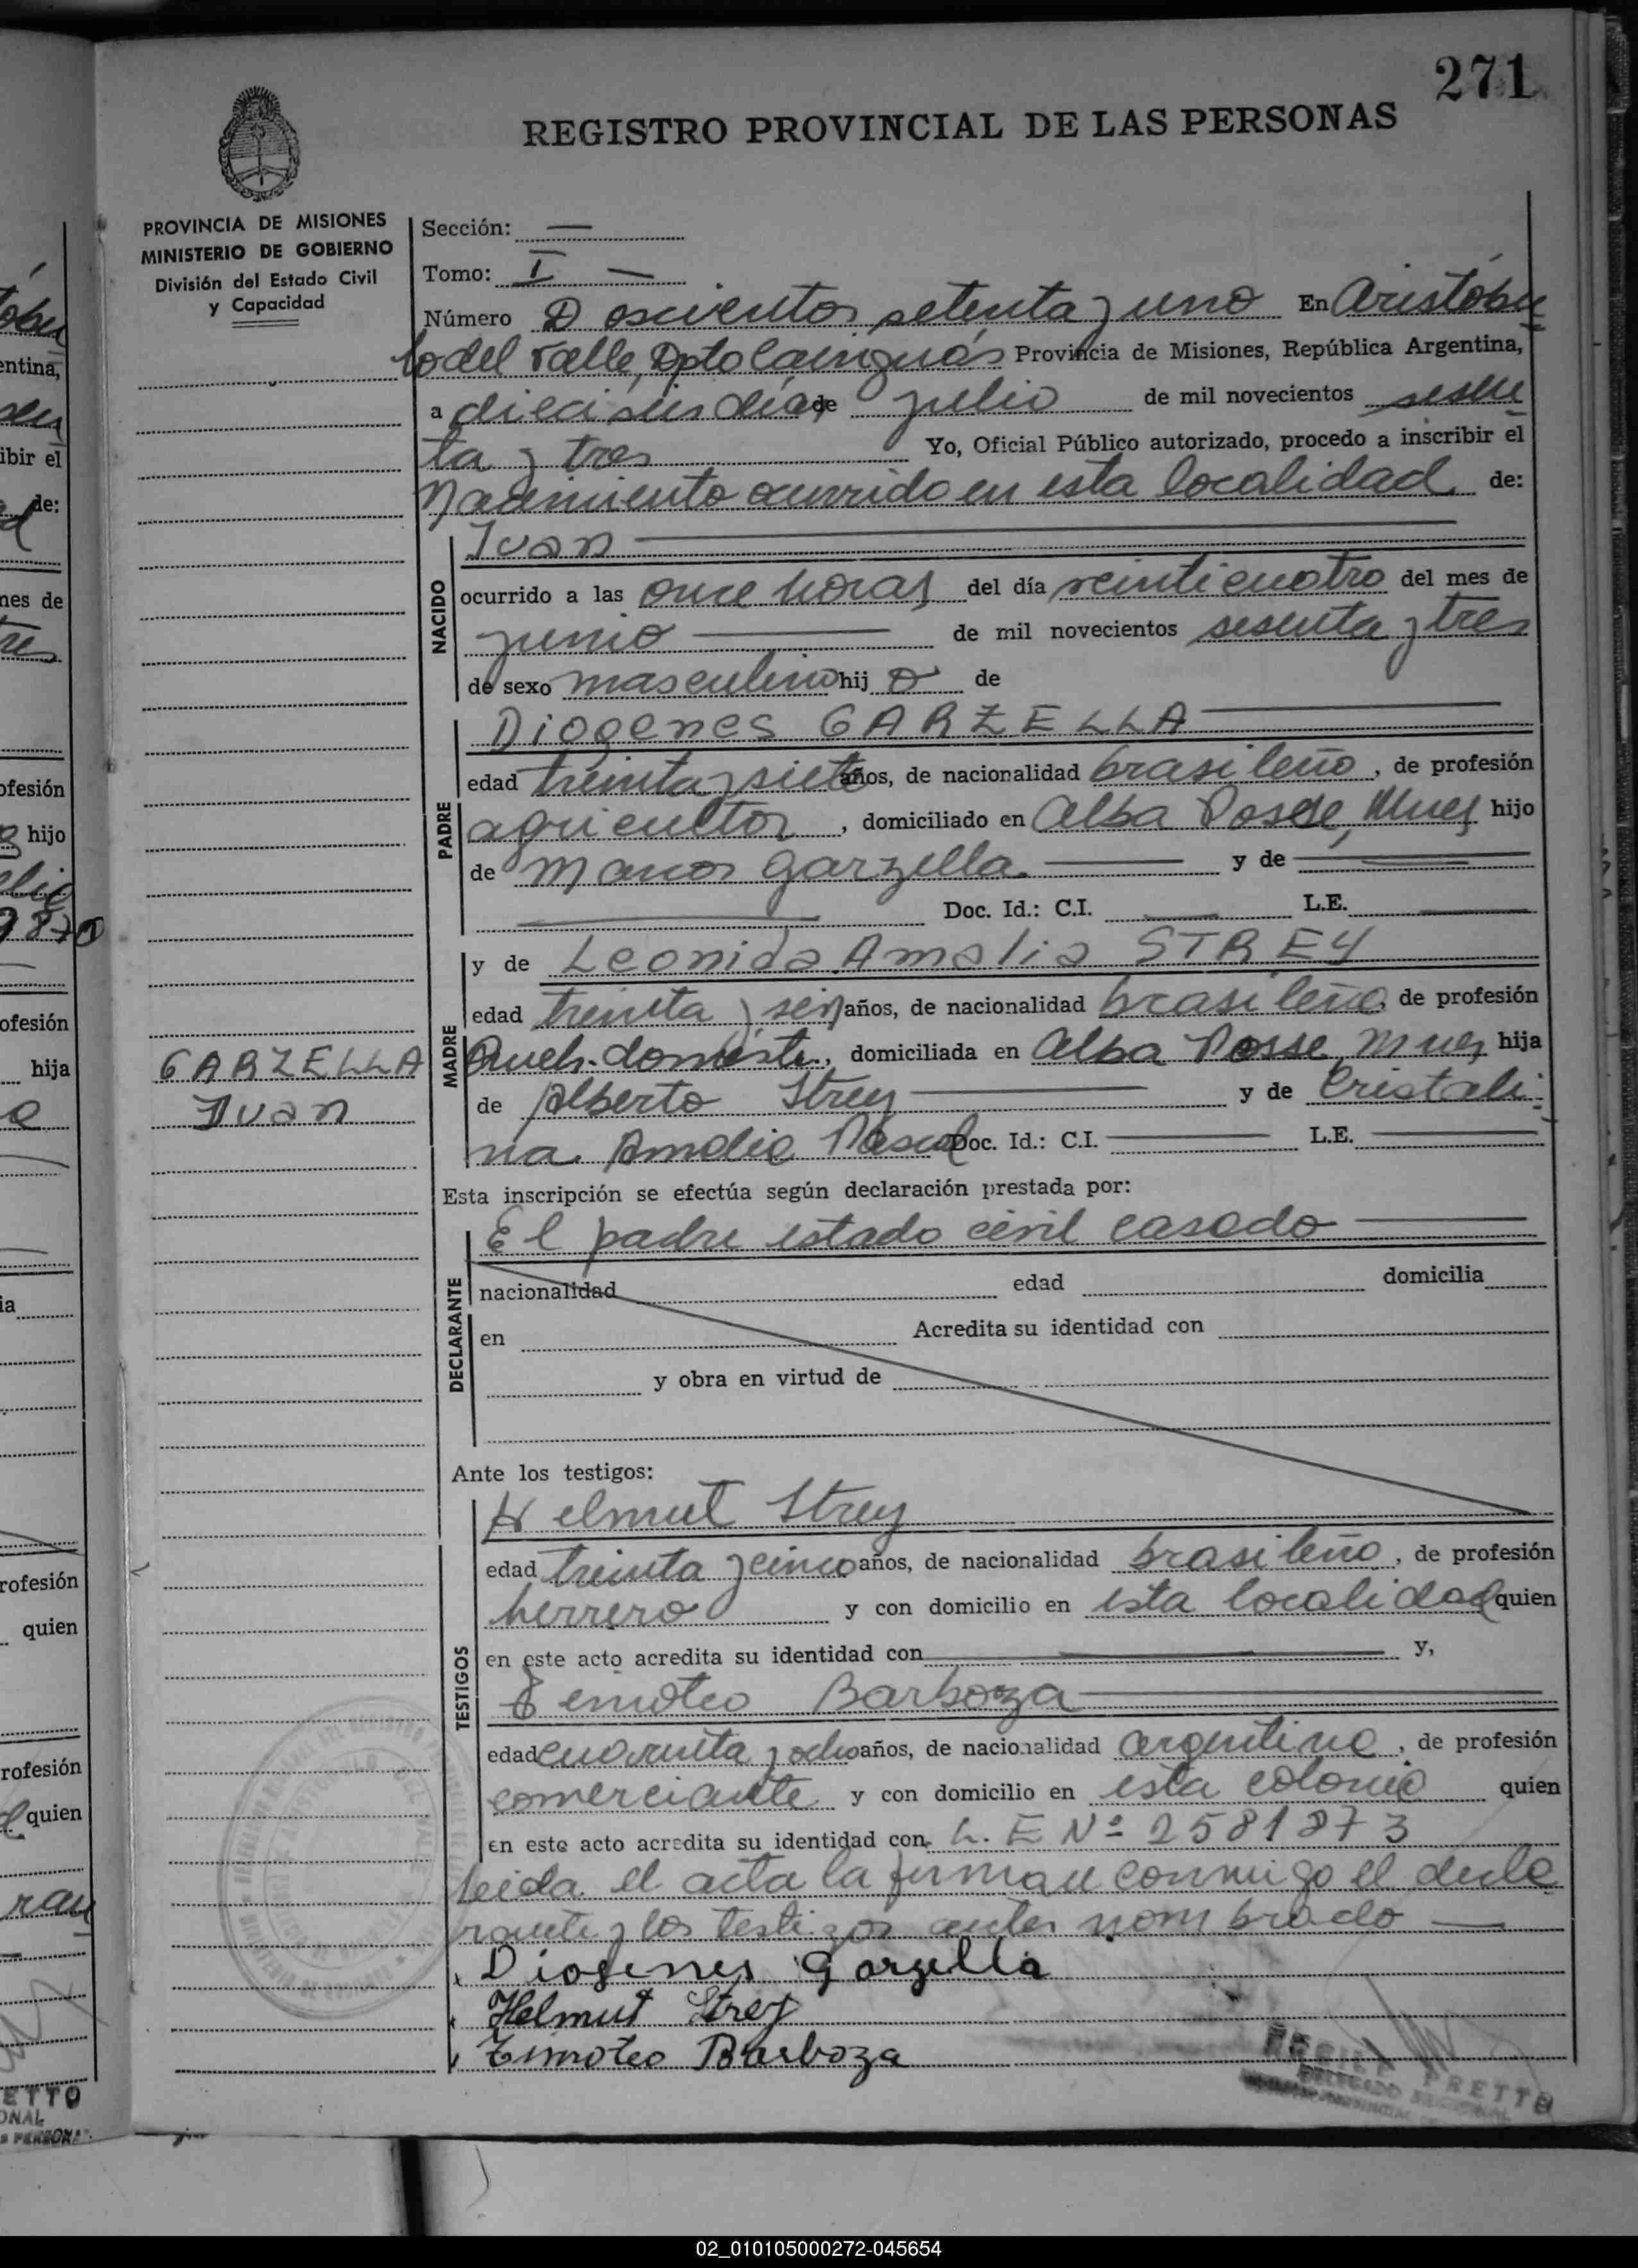 271
REGISTRO PROVINCIAL DE LAS PERSONAS
PROVINCIA DE MISIONES
MINISTERIO DE GOBIERNO
División del Estado Civil
y Capacidad
Sección: —
Tomo: I —
Número Doscientos setenta y uno En Aristóbu
lo del Valle, Dpto Cainguás Provincia de Misiones, República Argentina,
a dieciseis días de julio de mil novecientos sesen
ta y tres Yo, Oficial Público autorizado, procedo a inscribir el
Nacimiento ocurrido en esta localidad de:
NACIDO
Juan
ocurrido a las once horas del día veinticuatro del mes de
junio de mil novecientos sesenta y tres
de sexo masculino hij o de
PADRE
Diogenes GARZELLA
edad treinta y siete años, de nacionalidad brasileño, de profesión
agricultor, domiciliado en Alba Posse, Mnes hijo
de Marcos Garzella. y de
Doc. Id.: C.I. L.E.
MADRE
y de Leonida Amalia STREY
edad treinta y seis años, de nacionalidad brasileña de profesión
Queh. domést., domiciliada en Alba Posse, Mnes hija
de Alberto Strey y de Cristali-
na Amalia Doc. Id.: C.I. L.E.
GARZELLA
Juan
Esta inscripción se efectúa según declaración prestada por:
DECLARANTE
El padre estado civil casado
nacionalidad edad domicilia
en Acredita su identidad con
y obra en virtud de
Ante los testigos:
TESTIGOS
Helmut Strey
edad treinta y cinco años, de nacionalidad brasileño, de profesión
herrero y con domicilio en esta localidad quien
en este acto acredita su identidad con y,
Timoteo Barboza
edad cuarenta y ocho años, de nacionalidad argentino, de profesión
comerciante y con domicilio en esta colonia quien
en este acto acredita su identidad con L. E Nº 2581873
leida el acta la firman conmigo el decla
rante y los testigos antes nombrado
Diogenes Garzella
Helmut Strey
Timoteo Barboza
PRETTO
DELEGADO
02_010105000272-045654